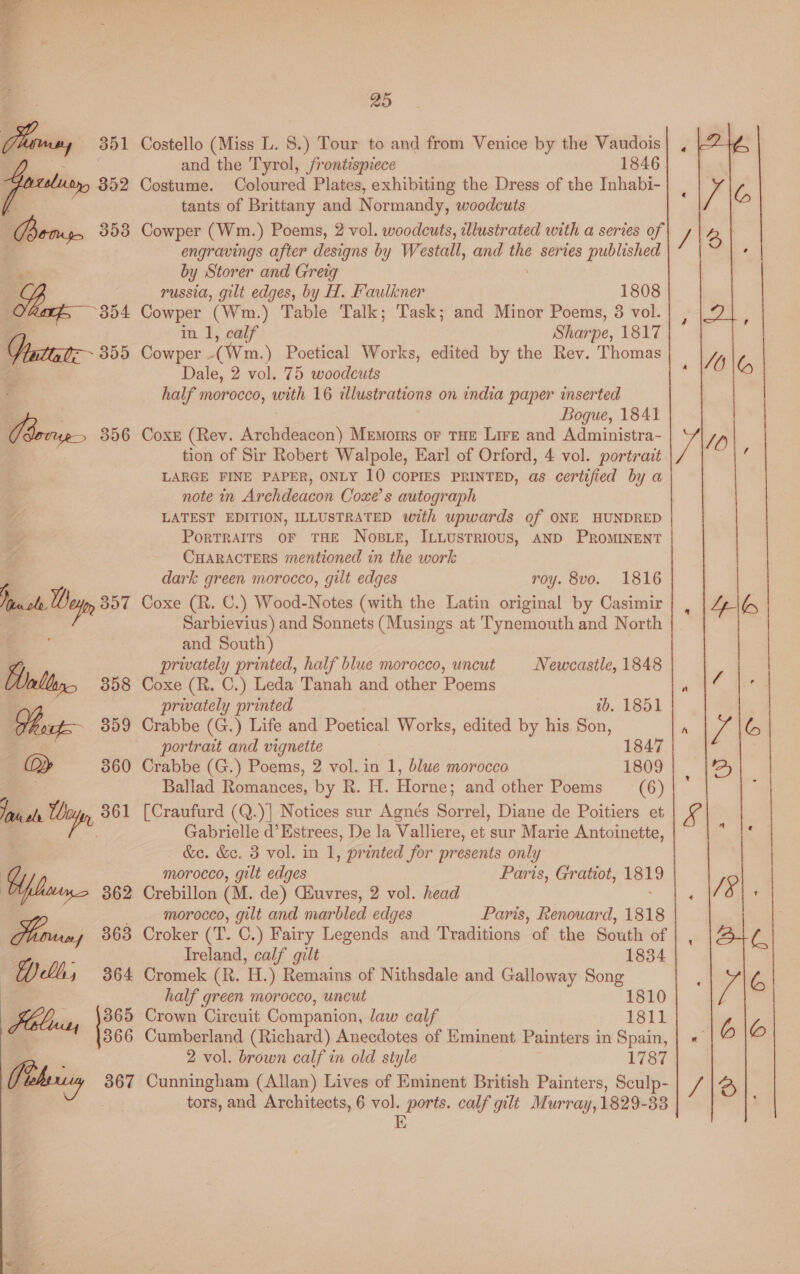 25
351 Costello (Miss L. S.) Tour to and from Venice by the Vaudois
and the Tyrol, frontispiece 1846
352 Costume. Coloured Plates, exhibiting the Dress of the Inhabi-
tants of Brittany and Normandy, woodcuts 7 6
353 Cowper (Wm.) Poems, 2 vol. woodcuts, illustrated with a series of
engravings after designs by Westall, and the series published 1 3
by Storer and Greig
russia, gilt edges, by H. Faulkner 1808
354 Cowper (Wm.) Table Talk; Task; and Minor Poems, 3 vol. 2
in 1, calf Sharpe, 1817
355 Cowper (Wm.) Poetical Works, edited by the Rev. Thomas
Dale, 2 vol. 75 woodcuts 10 6
half morocco, with 16 illustrations on india paper inserted
Bogue, 1841
356 Coxe (Rev. Archdeacon) Memoirs of the Life and Administra-
tion of Sir Robert Walpole, Earl of Orford, 4 vol. portrait 7 10
LARGE FINE PAPER, ONLY 10 COPIES PRINTED, as certified by a
note in Archdeacon Coxe's autograph
LATEST EDITION, ILLUSTRATED with upwards of ONE HUNDRED
PORTRAITS OF THE NOBLE, ILLUSTRIOUS, AND PROMINENT
CHARACTERS mentioned in the work
dark green morocco, gilt edges roy. 8vo. 1816
357 Coxe (R. C.) Wood-Notes (with the Latin original by Casimir 4 6
Sarbievius) and Sonnets (Musings at Tynemouth and North
and South)
privately printed, half blue morocco, uncut Newcastle, 1848
358 Coxe (R. C.) Leda Tanah and other Poems 1
privately printed ib. 1851
Short 359 Crabbe (G.) Life and Poetical Works, edited by his Son, 7 6
portrait and vignette 1847
360 Crabbe (G.) Poems, 2 vol. in 1, blue morocco 1809 3
Ballad Romances, by R. H. Horne; and other Poems (6)
361 [Craufurd (Q.)] Notices sur Agnés Sorrel, Diane de Poitiers et 8
Gabrielle d'Estrees, De la Valliere, et sur Marie Antoinette,
&c. &c. 3 vol. in 1, printed for presents only
morocco, gilt edges Paris, Gratiot, 1819
Upham 362 Crebillon (M. de) Œuvres, 2 vol. head 18
morocco, gilt and marbled edges Paris, Renouard, 1818
363 Croker (T. C.) Fairy Legends and Traditions of the South of
Ireland, calf gilt 1834
Wells 364 Cromek (R. H.) Remains of Nithsdale and Galloway Song 7 6
half green morocco, uncut 1810
365 Crown Circuit Companion, law calf 1811
366 Cumberland (Richard) Anecdotes of Eminent Painters in Spain, 6 6
2 vol. brown calf in old style 1787
Pickering 367 Cunningham (Allan) Lives of Eminent British Painters, Sculp- 1 3
tors, and Architects, 6 vol. ports. calf gilt Murray, 1829-33
E